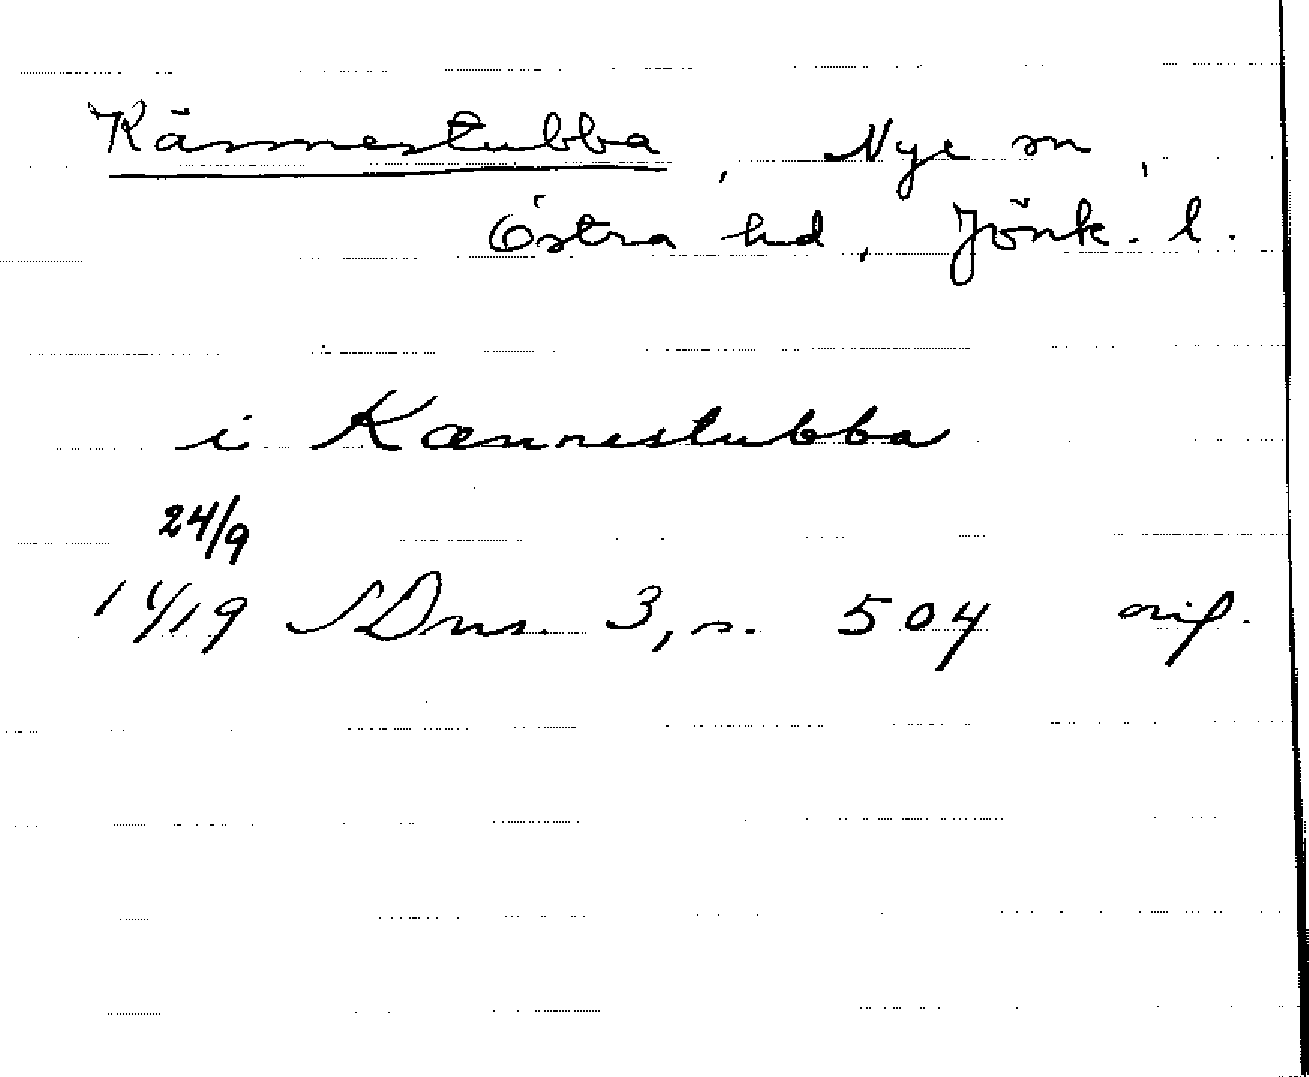 Kännestubba, Nye sn,
Östra hd, Jönk. l.
i Kænnestubba
24/9
1419 SDns. 3, s. 504 orig.